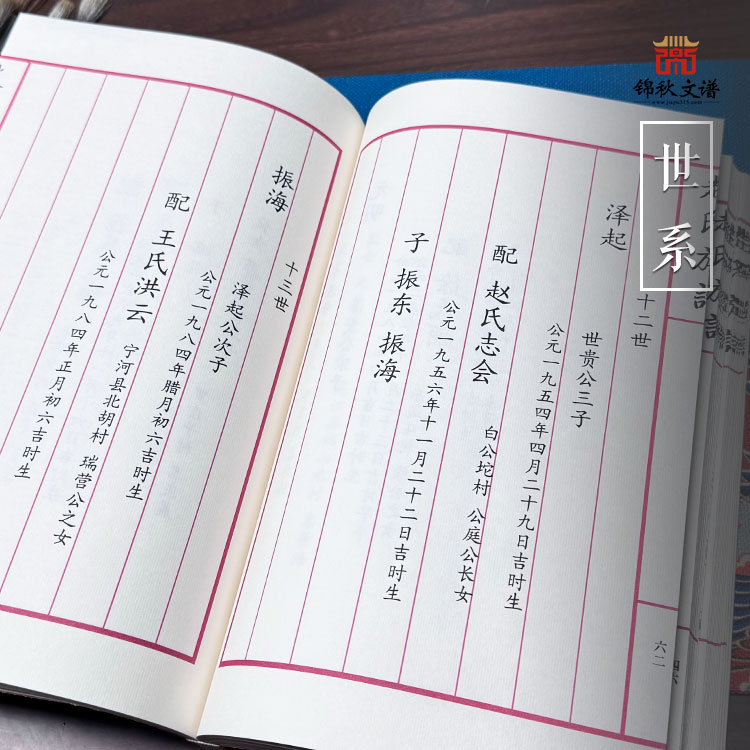 锦秋文谱
www.jxqu315.com
世系
泽起
十二世
世贵公三子
公元一九五四年四月二十九日吉时生
配 赵氏志会
白公坨村 公庭公长女
公元一九五六年十一月二十二日吉时生
子 振东 振海
六二
振海
十三世
泽起公次子
公元一九八四年腊月初六吉时生
配 王氏洪云
宁河县北胡村 瑞营公之女
公元一九八四年正月初六吉时生